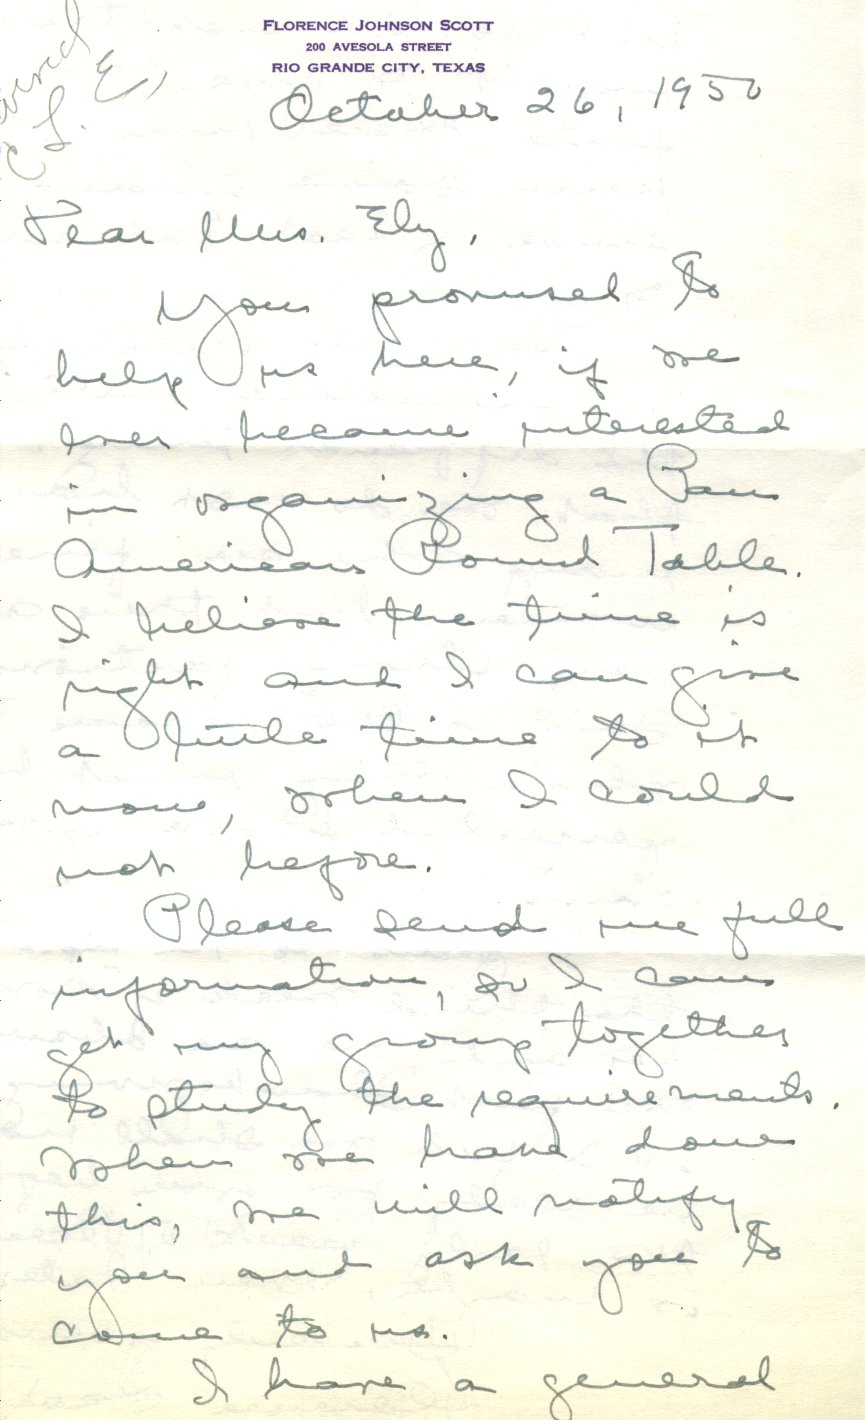 FLORENCE JOHNSON SCOTT
200 AVESOLA STREET
RIO GRANDE CITY, TEXAS
October 26, 1950
Dear Mrs. Ely,
You promised to
help us here, if we
ever became interested
in organizing a Pan
American Round Table.
I believe the time is
right and I can give
a little time to it
now, when I could
not before.
Please send me full
information, so I can
get my group together
to study the requirements.
When we have done
this, we will notify
you and ask you to
come to us.
I have a general